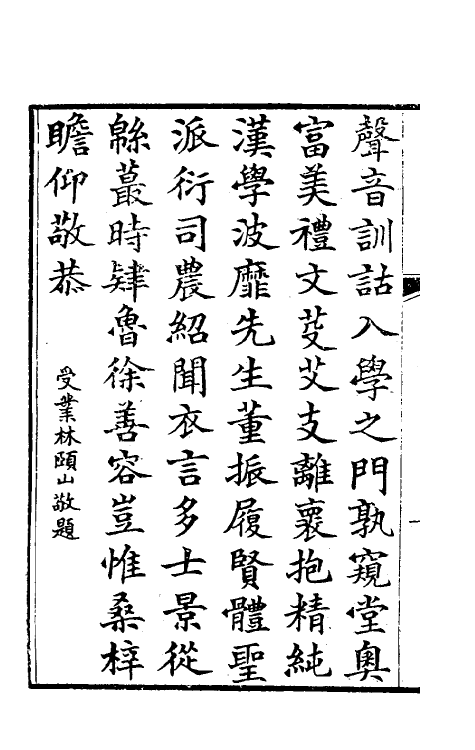 聲音訓詁入學之門孰窺堂奧
富美禮文芟艾支離裹抱精純
漢學波靡先生董振履賢體聖
派衍司農紹聞衣言多士景從
緜蕞時肄魯徐善容豈惟桑梓
瞻仰敬恭
受業林頤山敬題
一